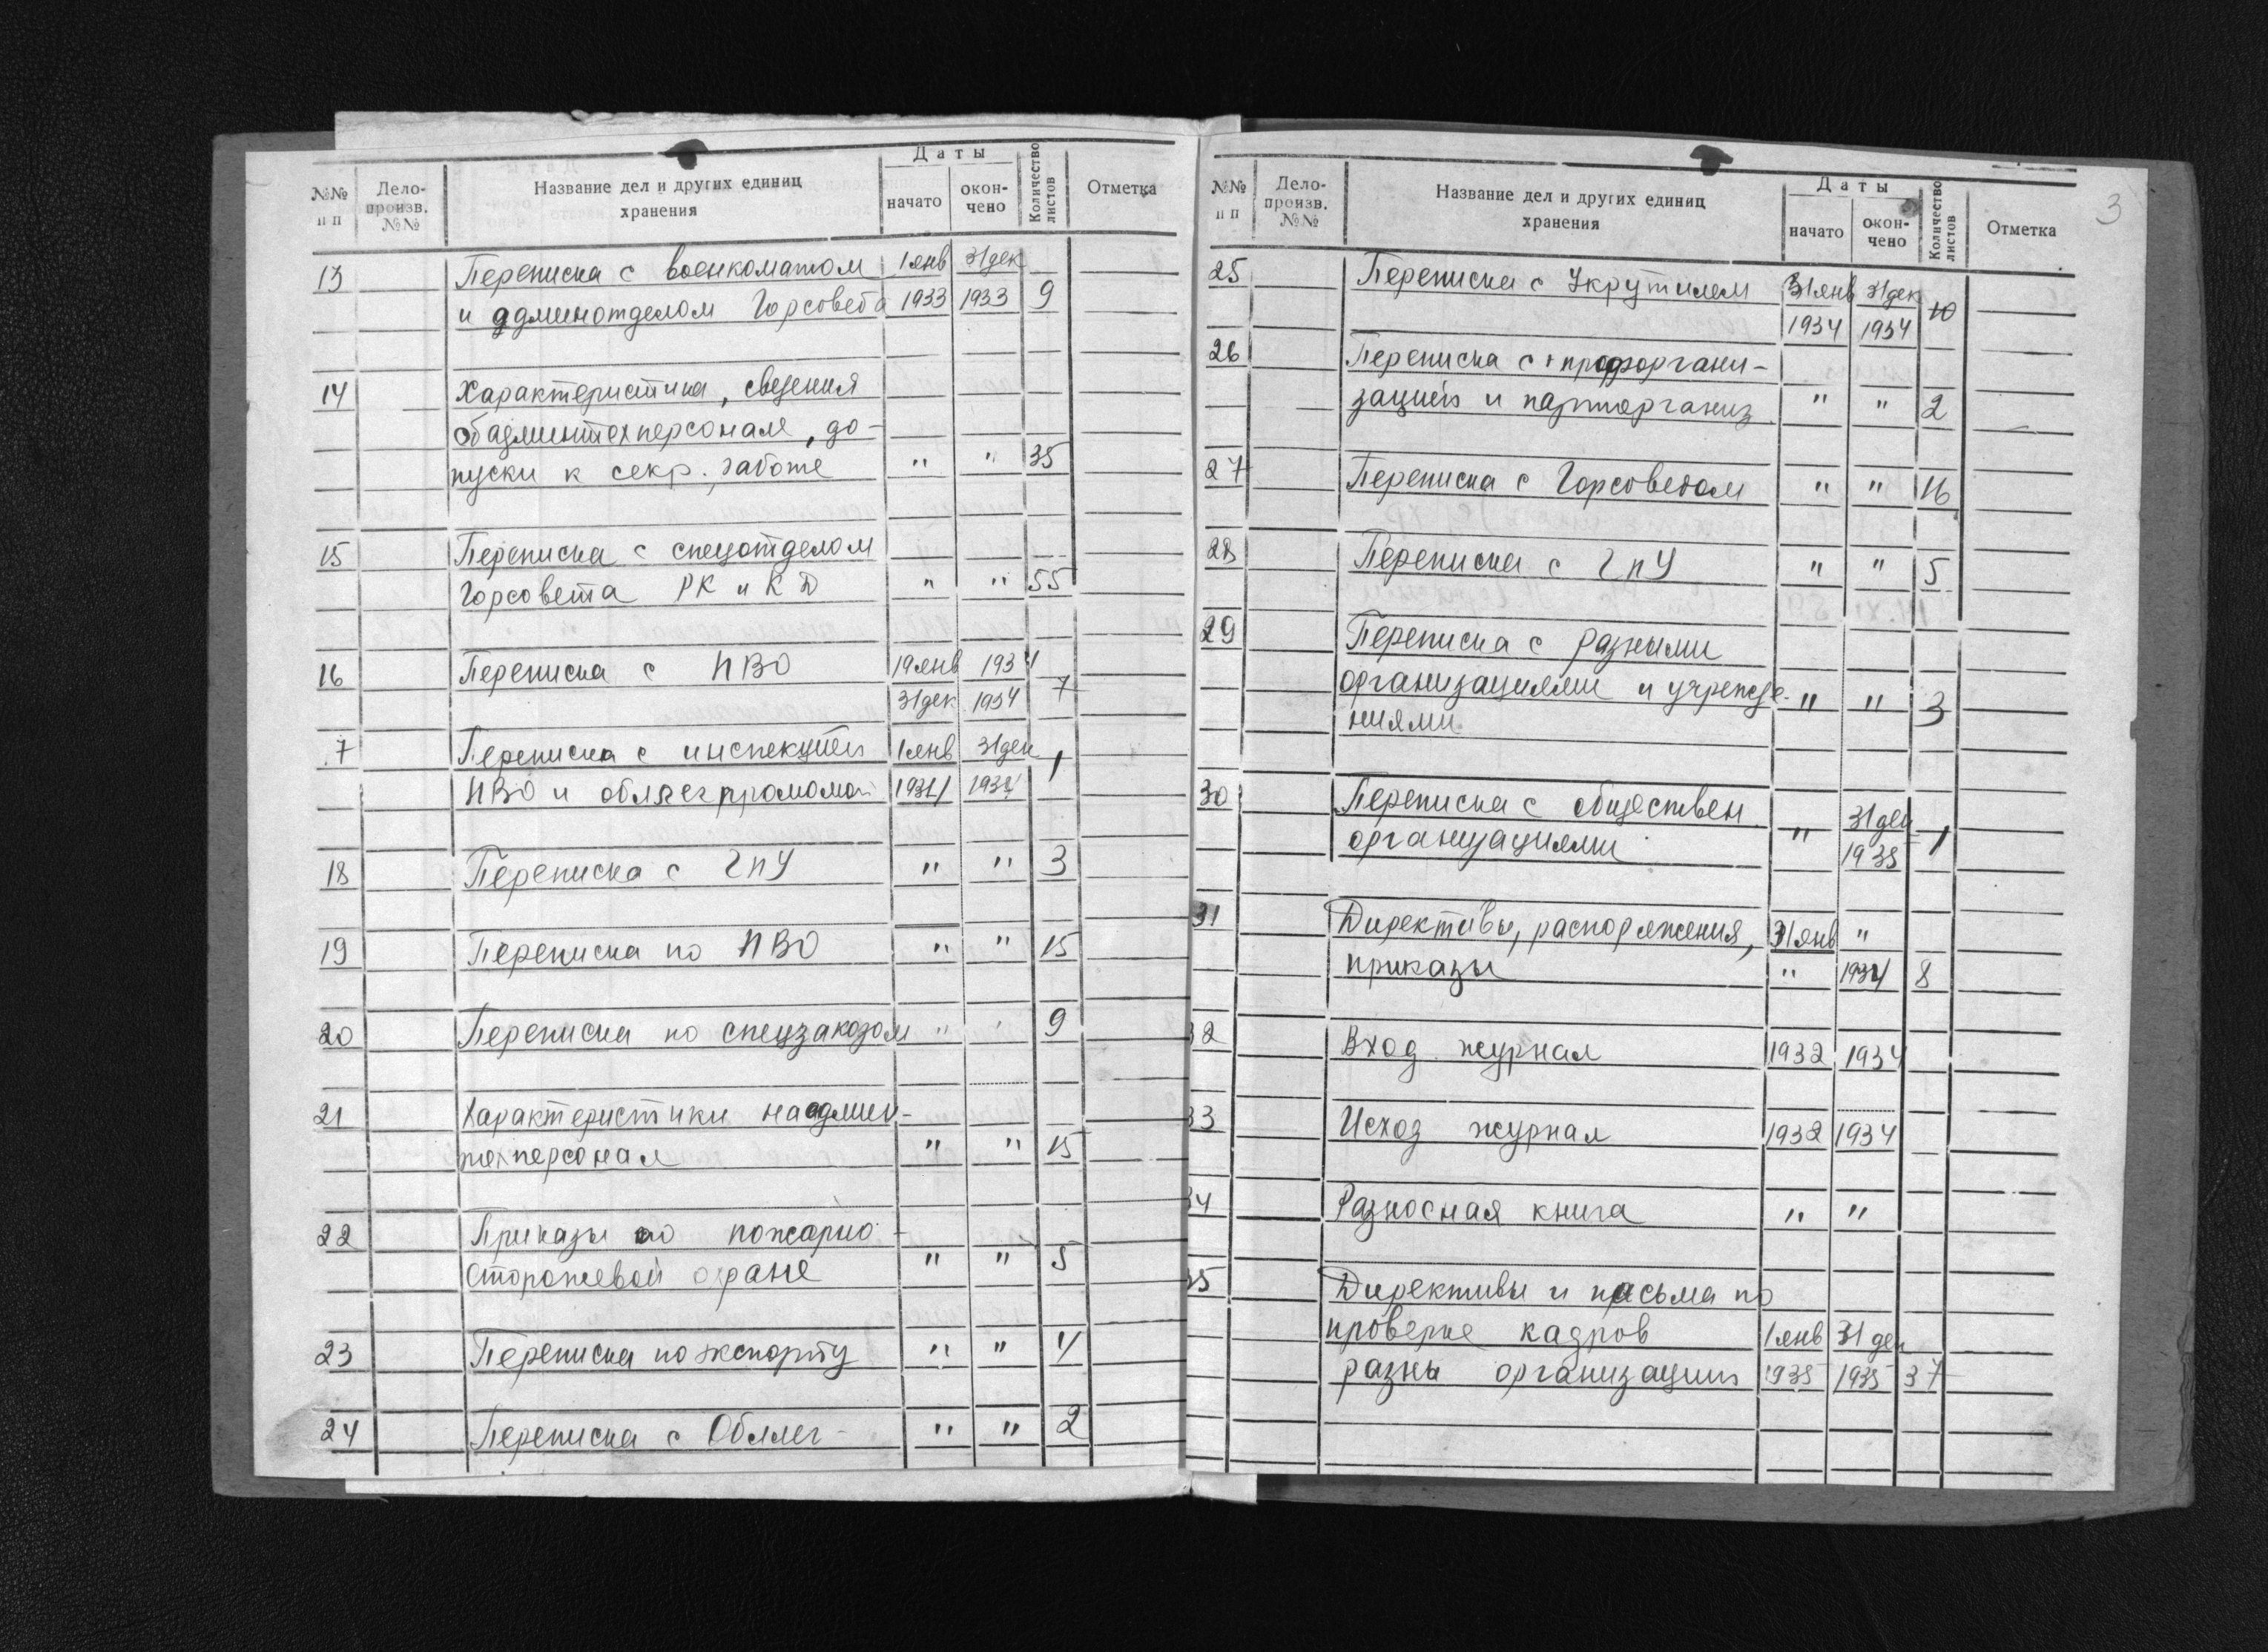 №№ п п Дело-произв. №№ Название дел и других единиц хранения Даты начато окон-чено Количество листов Отметка
13 Переписка с военкоматом 1 янв 31 дек
и админотделом Горсовета 1933 1933 9
14 Характеристика, сведения
об админтехперсонале, до-
пуски к секр. работе " " 35
15 Переписка с спецотделом
Горсовета РК и КД " " 55
16 Переписка с ПВО 19 янв 1934
31 дек 1934 7
7 Переписка с инспекцией 1 янв 31 дек 1
ПВО и 1934 1934
18 Переписка с ГПУ " " 3
19 Переписка по ПВО " " 15
20 Переписка по спецзаказам " " 9
21 Характеристики на админ-
техперсонал " " 15
22 Приказы по пожарно-
сторожевой охране " " 5
23 Переписка по экспорту " " 4
24 Переписка с Обллег- " " 2
3
№№ п п Дело-произв. №№ Название дел и других единиц хранения Даты начато окон-чено Количество листов Отметка
25 Переписка с Укрутилем 31 янв 31 дек 10
1934 1934
26 Переписка с профоргани-
зацией и парторганиз. " " 2
27 Переписка с Горсоветом " " 16
28 Переписка с ГПУ " " 5
29 Переписка с разными
организациями и учрежде- " " 3
ниями
30 Переписка с обществен. " 31 дек 1
организациями 1935
31 Директивы, распоряжения, 31 янв "
приказы " 1934 8
32 Вход. журнал 1932 1934
33 Исход журнал 1932 1934
34 Разносная книга " "
35 Директивы и письма по
проверке кадров 1 янв 31 дек
разны организации 1935 1935 37